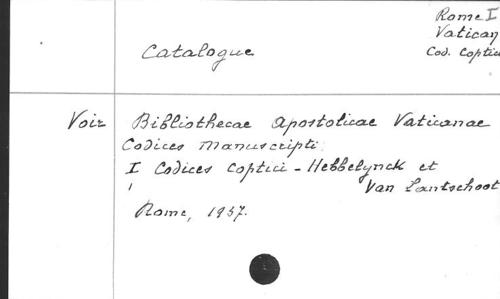 Rome I
Vatican
Catalogue
Cod. Coptici
Voir Bibliothecae Apostolicae Vaticanae
Codices Manuscripti
I Codices Coptici - Hebbelynck et
Van Lantschoot
Rome, 1937.